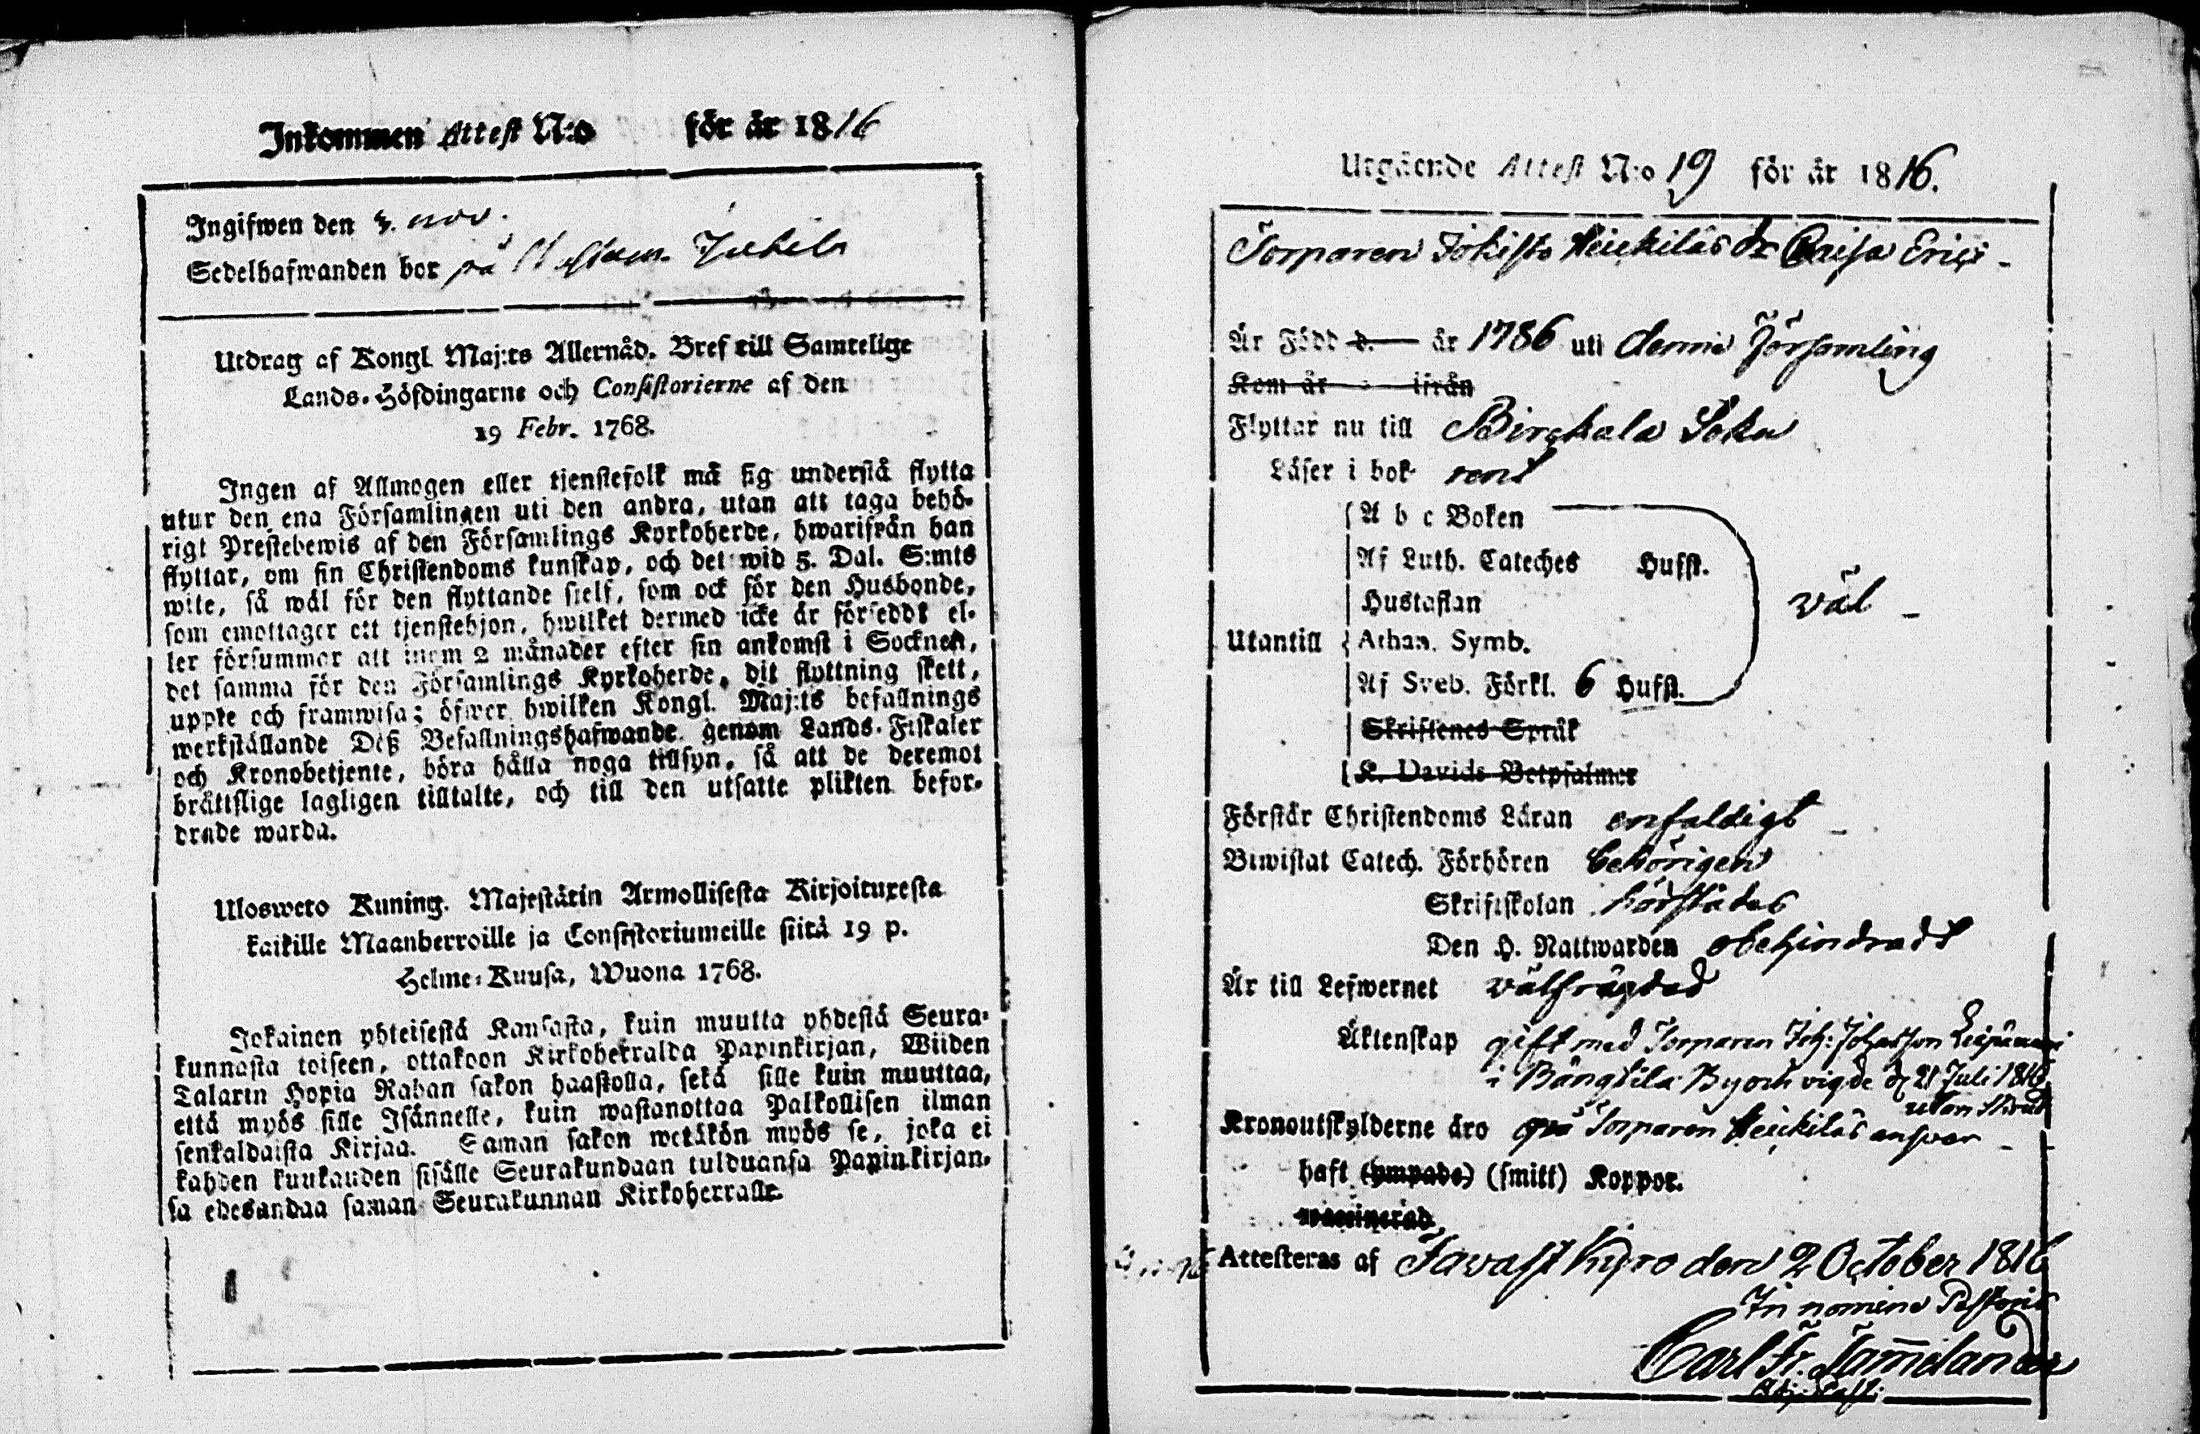 Inkommen Attest N:o för år 1816
Ingifwen den 3. nov.
Sedelhafwanden bor på
Utdrag af Kongl. Maj:ts Allernåd. Bref till Samtelige
Lands-Höfdingarne och Consistorierne af den
19 Febr. 1768.
Ingen af Allmogen eller tjenstefolk må sig understå flytta
utur den ena Församlingen uti den andra, utan att taga behö-
rigt Prestebewis af den Församlings Kyrkoherde, hwarifrån han
flyttar, om sin Christendoms kunskap, och det wid 5. Dal. S:mts
wite, så wäl för den flyttande sielf, som ock för den Husbonde,
som emottager ett tjenstehjon, hwilket dermed icke är försedt el-
ler försummar att inom 2 månader efter sin ankomst i Socknen,
det samma för den Församlings Kyrkoherde, dit flyttning skett,
uppte och framwisa; öfwer hwilken Kongl. Maj:ts befallnings
werkställande Deß Befallningshafwande genom Lands-Fiskaler
och Kronobetjente, böra hålla noga tillsyn, så att de deremot
bråttslige lagligen tilltalte, och till den utsatte plikten befor-
drade warda.
Ulosweto Kuning. Majestätin Armollisesta Kirjoituxesta
kaikille Maanherroille ja Consistoriumeille siitä 19 p.
Helme-Kuusa, Wuona 1768.
Jokainen yhteisestä Kansasta, kuin muutta yhdestä Seura-
kunnasta toiseen, ottakoon Kirkoherralda Papinkirjan, Wiiden
Talarin Hopia Rahan sakon haastolla, sekä sille kuin muuttaa,
että myös sille Isännelle, kuin wastanottaa Palkollisen ilman
senkaldaista Kirjaa. Saman sakon wetäkön myös se, joka ei
kahden kuukauden sisälle Seurakundaan tulduansa Papinkirjan-
sa edesandaa saman Seurakunnan Kirkoherralle.
Utgående Attest N:o 19 för år 1816.
Torparen Jokisto Heickiläs dr Caisa Erics
Är Född d. år 1786 uti denna Församling
Kom år ifrån
Flyttar nu till Birckala Sokn
Läser i bok rent
A b c Boken
Af Luth. Cateches Hufst.
Hustaflan väl
Utantill Athan. Symb.
Af Sveb. Förkl. 6 Hufst.
Skriftenes Språk
K. Davids Botpsalmer
Förstår Christendoms Läran enfaldigt
Biwistat Catech. Förhören behörigen
Skriftskolan
Den H. Nattwarden obehindradt
Är till Lefwernet välfrägdad
Äktenskap gift med Torparen Joh: Johansson
i By och vigde d 21 Juli 1816
utan
Kronoutskylderne äro på Torparen Heickiläs ansvar
haft (ympade) (smitt) Koppor.
waccinerad,
Attesteras af Tavastkyro den 2 October 1816
In nomine Pastoris
Carl Fr. Tamelander
Adj: Past: